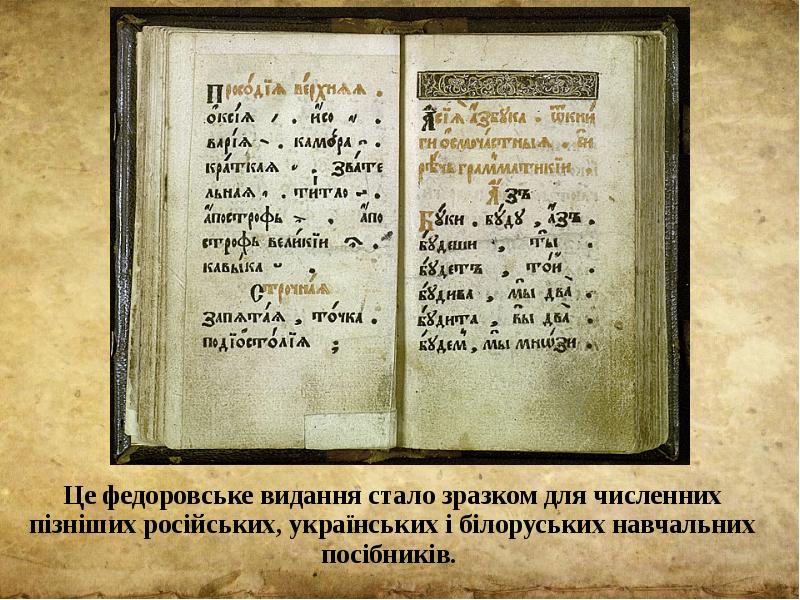 Просо́дїꙗ ве́рхнѧꙗ .
ѻ҆ксі́ѧ ́ . и҆́со ̓ .
варі́ѧ ̀ . камо́ра ̑ .
кра́ткаѧ ̆ . зва́те
льнаѧ . ти́тло ҃ .
а҆по́строфь . а҆по
строфь вели́кїи .
кавы́ка .
Стро́чнаѧ
запѧта́ѧ , то́чка .
подїѡсто́лїѧ ;
А҆ сїѧ̀ а҆́збꙋка . ѿ кни́
ги ѻ҆смоча́стныѧ . си́
рѣчь грамма́тикїи
А҆́зъ
Бꙋ́ки . бꙋ́дꙋ , а҆́зъ .
бꙋ́деши , ты̀ .
бꙋ́детъ , то́й .
бꙋ́дива , мы̀ два̀ .
бꙋ́дита , вы̀ два̀ .
бꙋ́демъ , мы̀ мно́зи .
Це федоровське видання стало зразком для численних
пізніших російських, українських і білоруських навчальних
посібників.